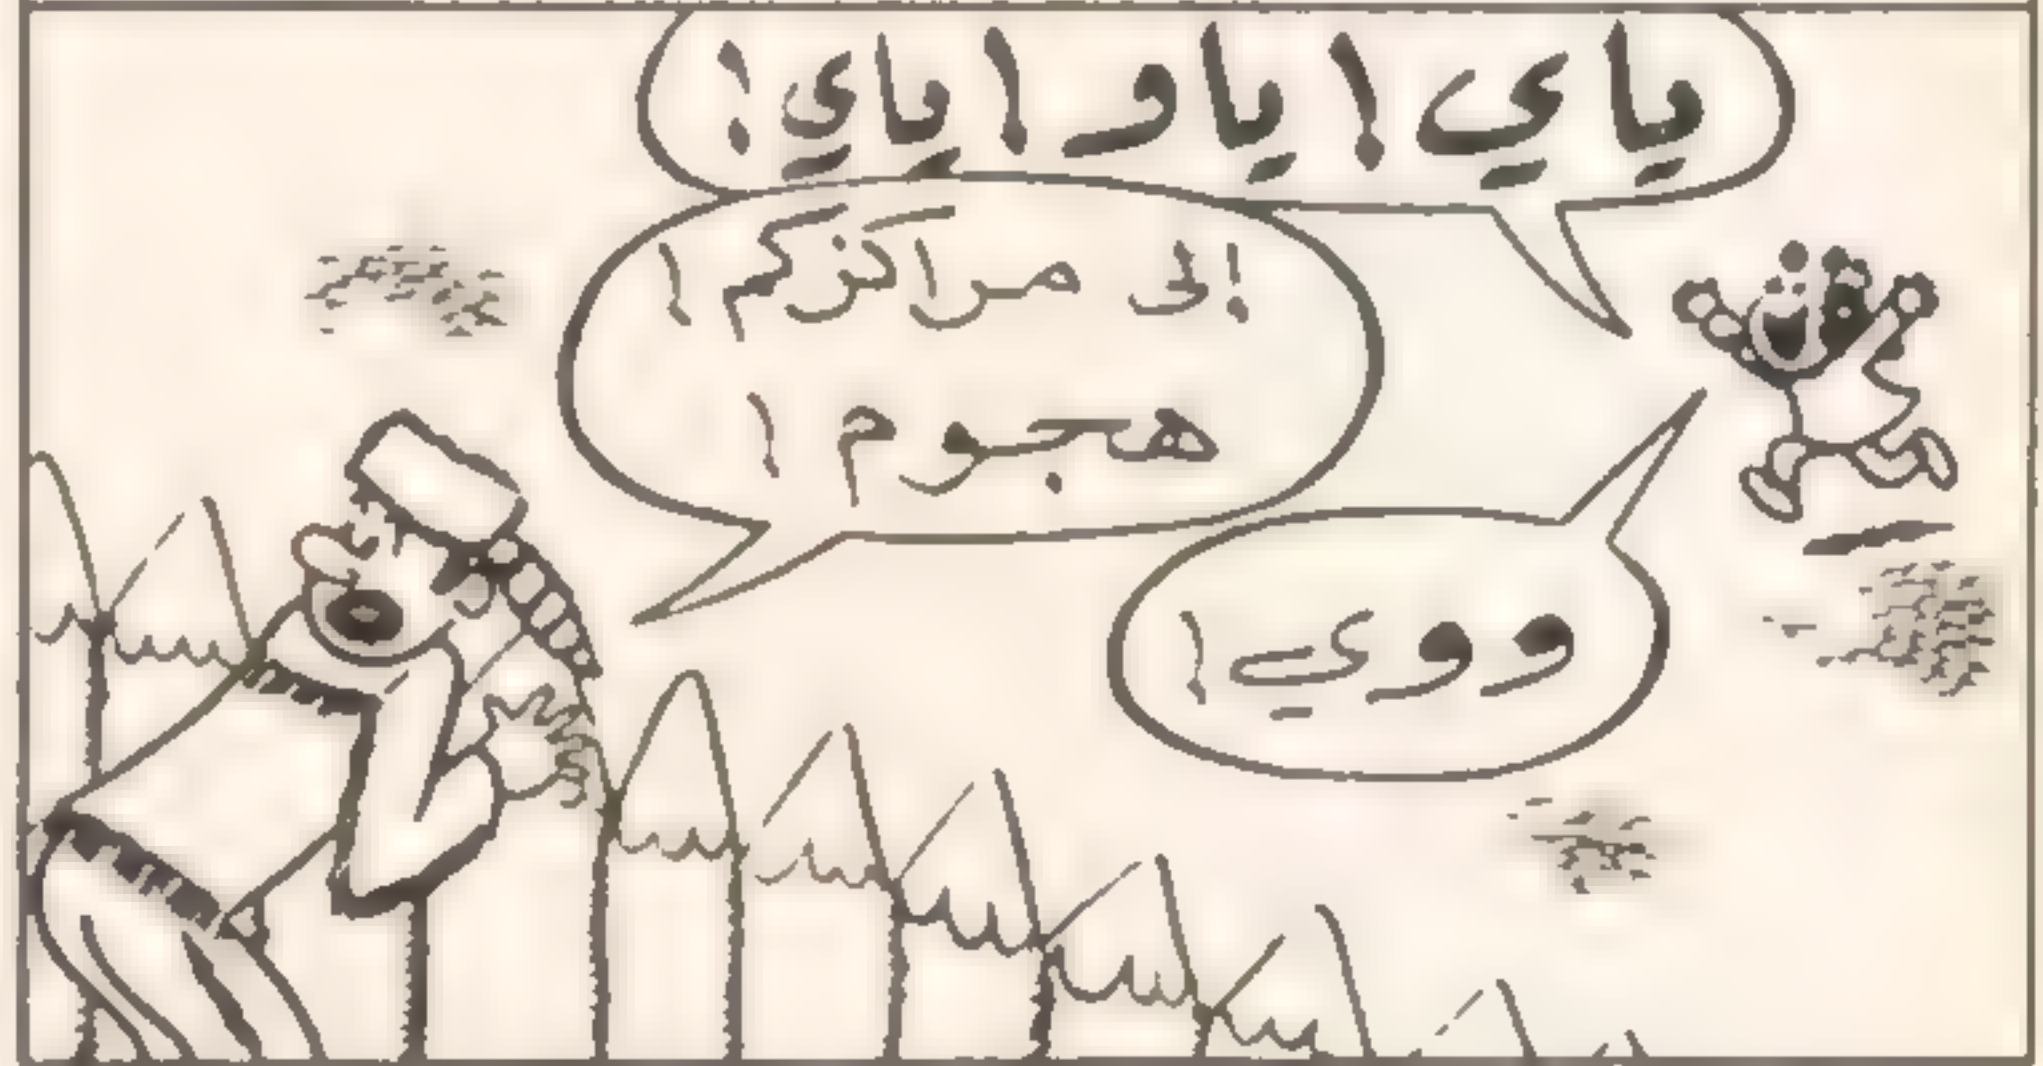 ياي ! ياو ! ياي !
إلى مراكزكم !
هجوم !
ووي !